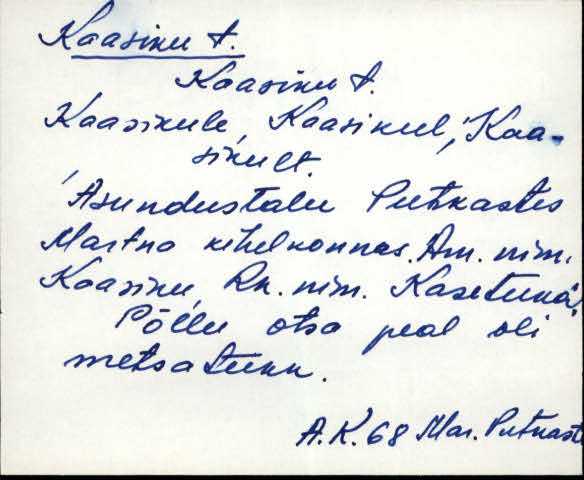 Kaasiku t.
Kaasiku t.
Kaasikule, Kaasikul, Kaa-
sikult.
Asundustalu Putkastes
Martna kihelkonnas. Am. nim.
Kaasiku, Rn. nim. Kasetuka.
Põllu otsa peal oli
metsatukk.
A.K. 68 Mar. Putkast